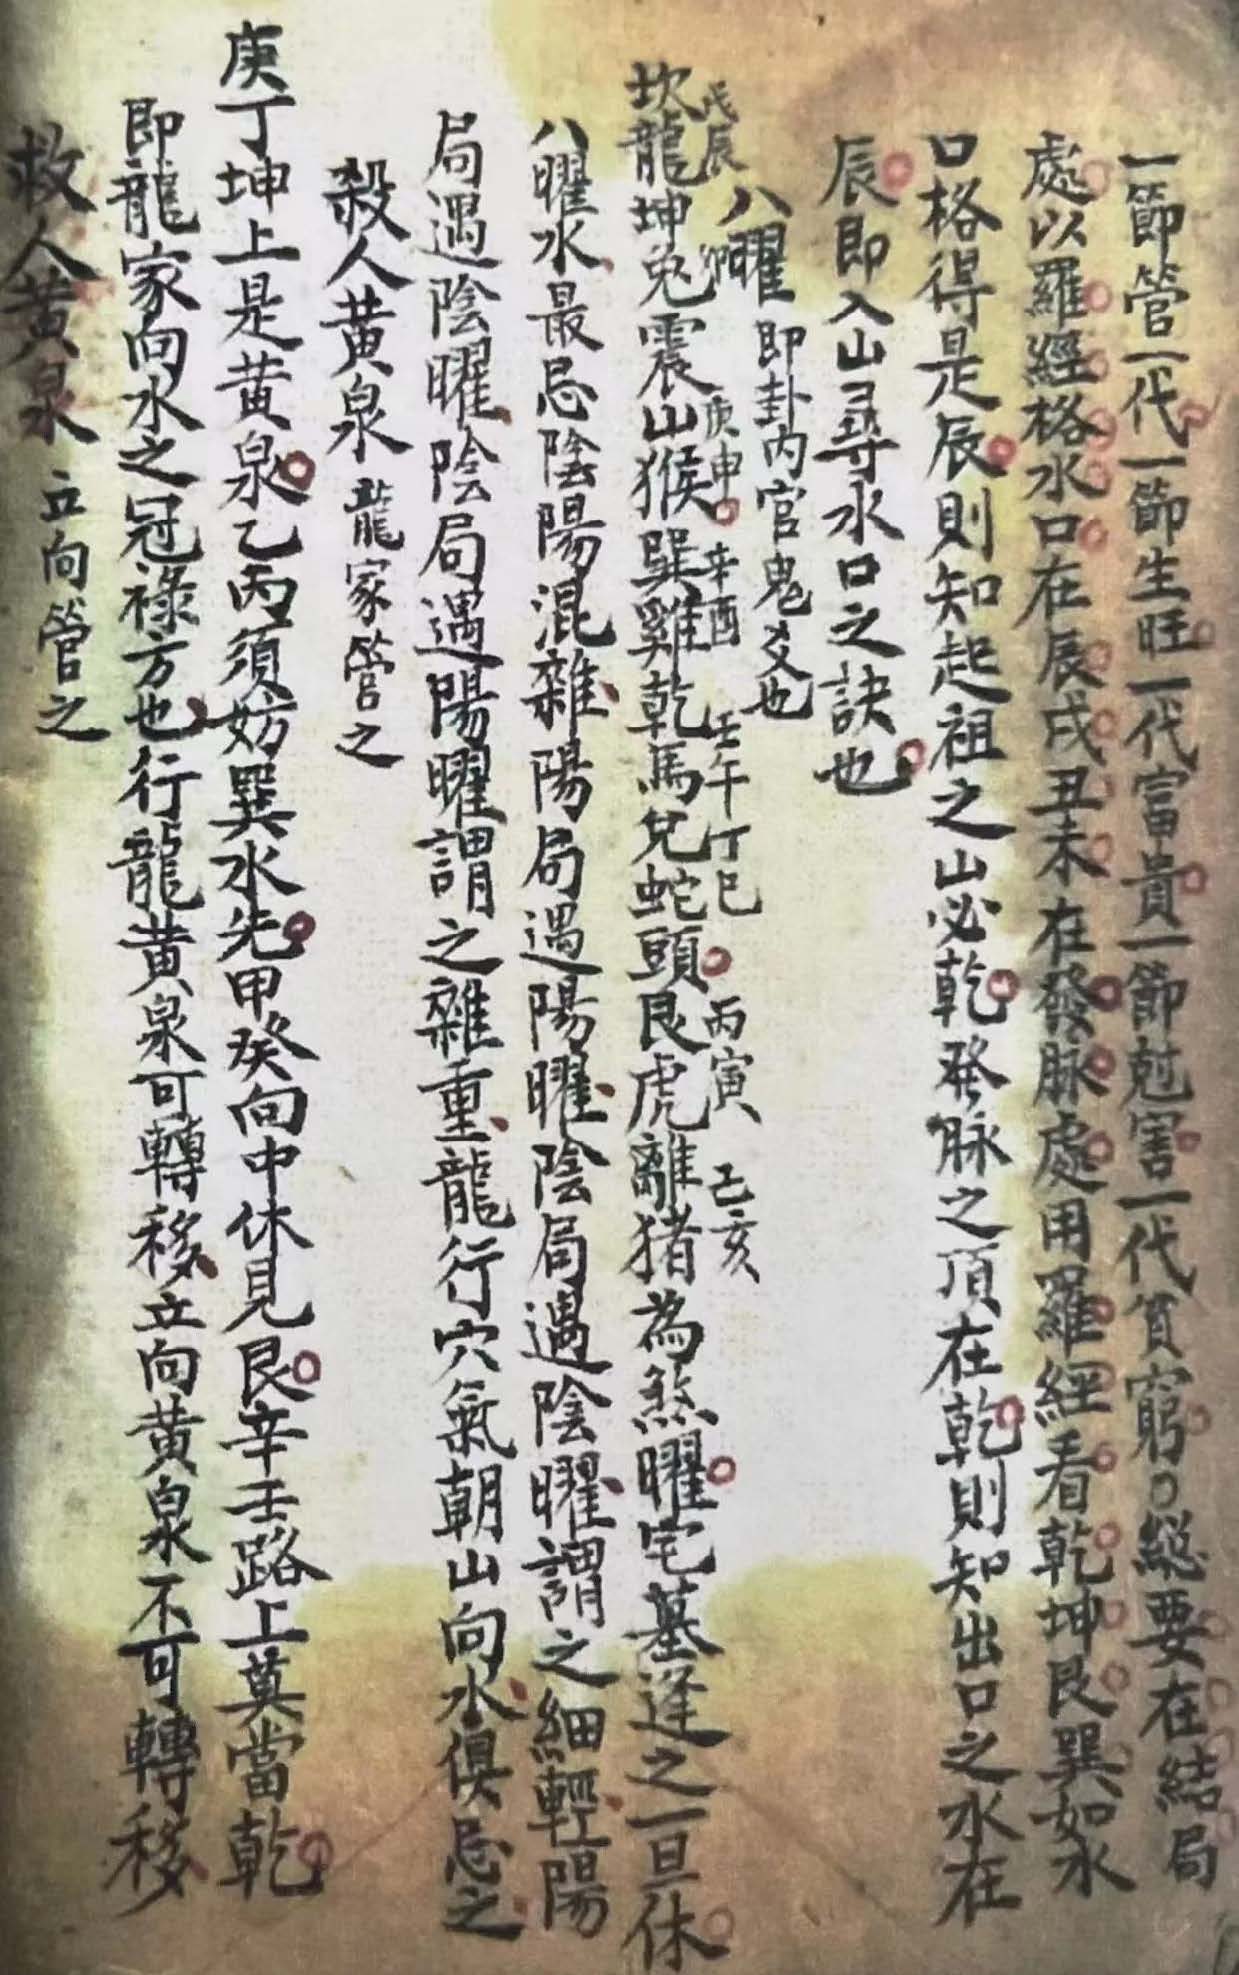 一節管一代一節生旺一代富貴一節尅害一代貧窮○總要在結局
處以羅經格水口在辰戌丑未在發脉處用羅經看乾坤艮巽如水
口格得是辰則知起祖之山必乾發脉之頂在乾則知出口之水在
辰即入山尋水口之訣也
八曜 即卦内官鬼爻也
戊辰 卯 庚申 辛酉 壬午 丁巳 丙寅 己亥
坎龍坤兔震山猴巽雞乾馬兌蛇頭艮虎離猪為煞曜宅墓逢之一旦休
八曜水最忌陰陽混雜陽局遇陽曜陰局遇陰曜謂之細輕陽
局遇陰曜陰局遇陽曜謂之雜重龍行穴氣朝山向水俱忌之
殺人黄泉 龍家管之
庚丁坤上是黄泉乙丙須妨巽水先甲癸向中休見艮辛壬路上莫當乾
即龍家向水之冠祿方也行龍黄泉可轉移立向黄泉不可轉移
救人黄泉 立向管之